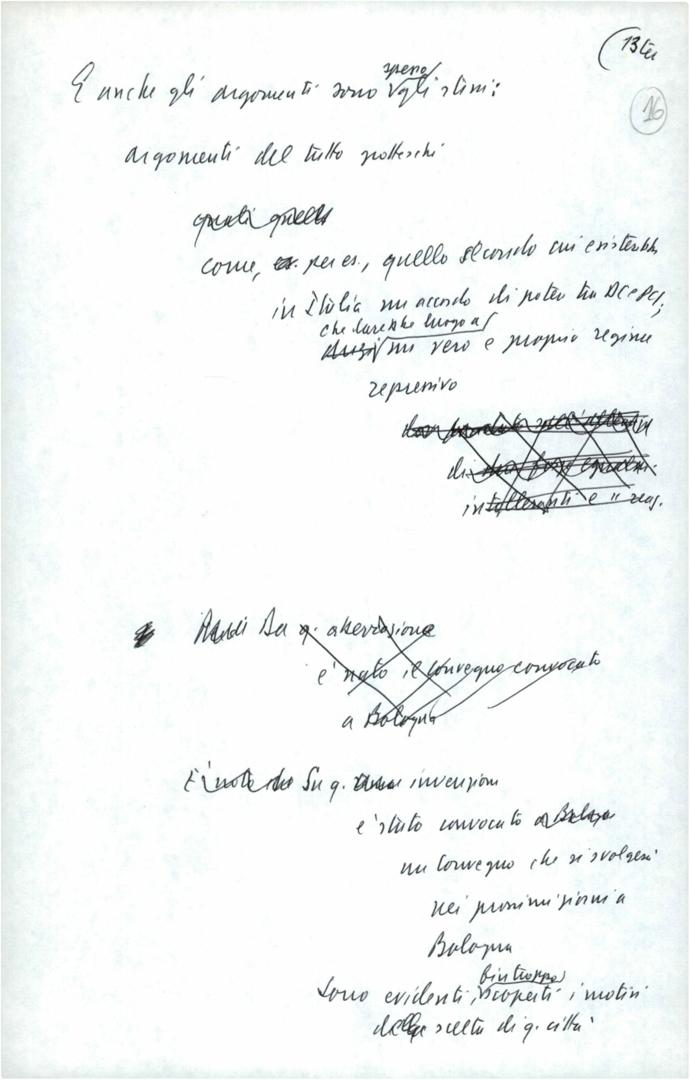 (13 ter
16
E anche gli argomenti sono spesso gli stessi:
argomenti del tutto grotteschi
quali quelli
come, es. per es., quello secondo cui esisterebbe
in Italia un accordo di potere tra DC e PCI,
che darebbe luogo a
un vero e proprio regime
repressivo
di
intolleranti e
Su q. aberrazione
è nato il convegno convocato
a Bologna
E' noto che Su q. invenzioni
è stato convocato a Bologna
un convegno che si svolgerà
nei prossimi giorni a
Bologna
Sono evidenti, fin troppo scoperti i motivi
della scelta di q. città